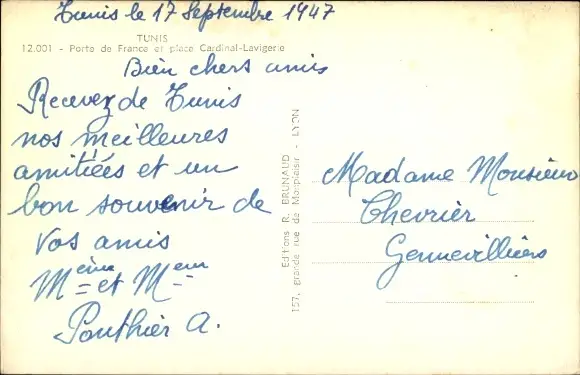 Tunis le 17 Septembre 1947
TUNIS
12.001 - Porte de France et place Cardinal-Lavigerie
Bien chers amis
Recevez de Tunis
nos meilleures
amitiées et un
bon souvenir de
Vos amis
Mème et Meur
Ponthier A.
Editions R. BRUNAUD - LYON
157, grande rue de Monplaisir
Madame Monsieur
Chevrier
Gennevilliers